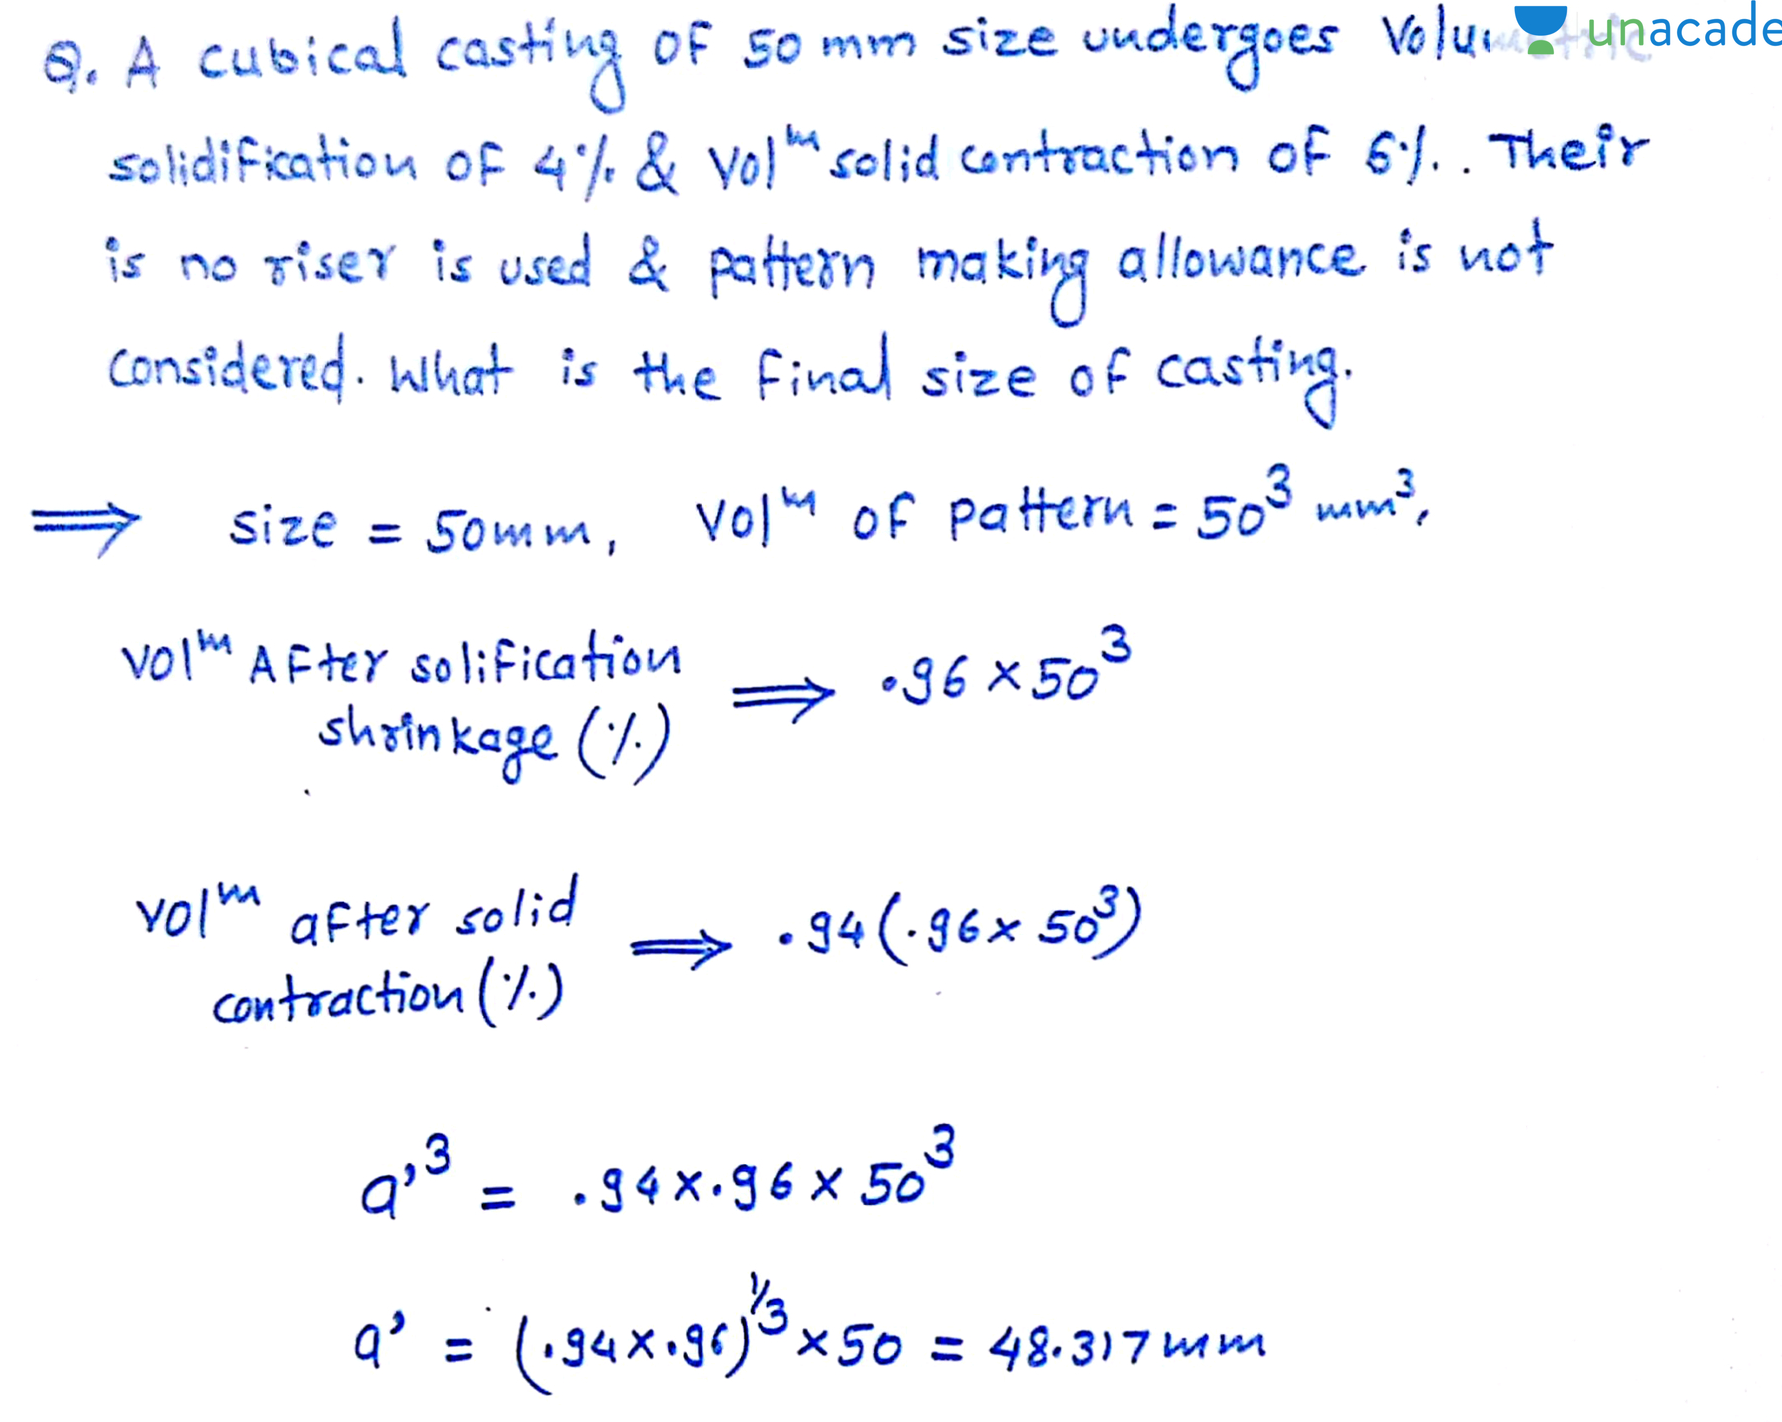 Q. A cubical casting of 50 mm size undergoes Volumetric
unacade
solidification of 4% & Volᵐ solid contraction of 6%. . Their
is no riser is used & pattern making allowance is not
considered. What is the final size of casting.
⇒ size = 50mm, Volᵐ of pattern = 50³ mm³,
Volᵐ After solification ⇒ .96 × 50³
shrinkage (%)
Volᵐ after solid ⇒ .94 (.96 × 50³)
contraction (%)
a'³ = .94 × .96 × 50³
a' = (.94 × .96)^1/3 × 50 = 48.317 mm